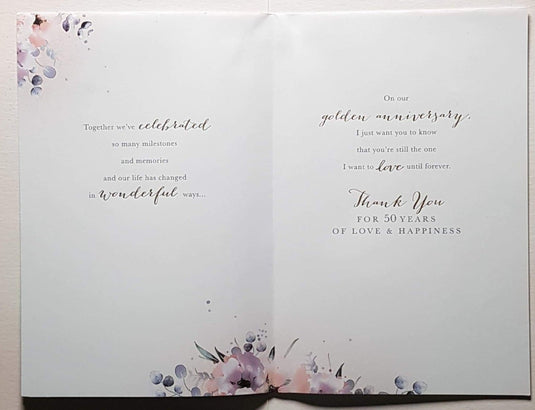 Together we've celebrated
so many milestones
and memories
and our life has changed
in wonderful ways...
On our
golden anniversary,
I just want you to know
that you're still the one
I want to love until forever.
Thank You
FOR 50 YEARS
OF LOVE & HAPPINESS